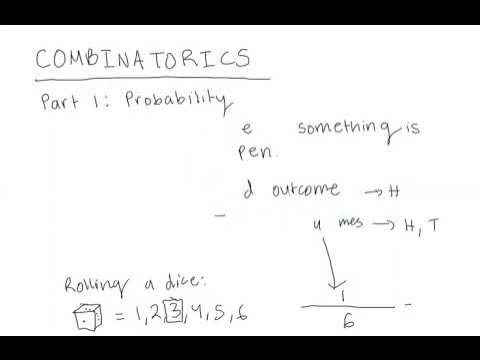 COMBINATORICS
Part 1: Probability
e something is
pen.
d outcome → H
u mes → H, T
Rolling a dice:
= 1, 2, 3, 4, 5, 6
1
6
=